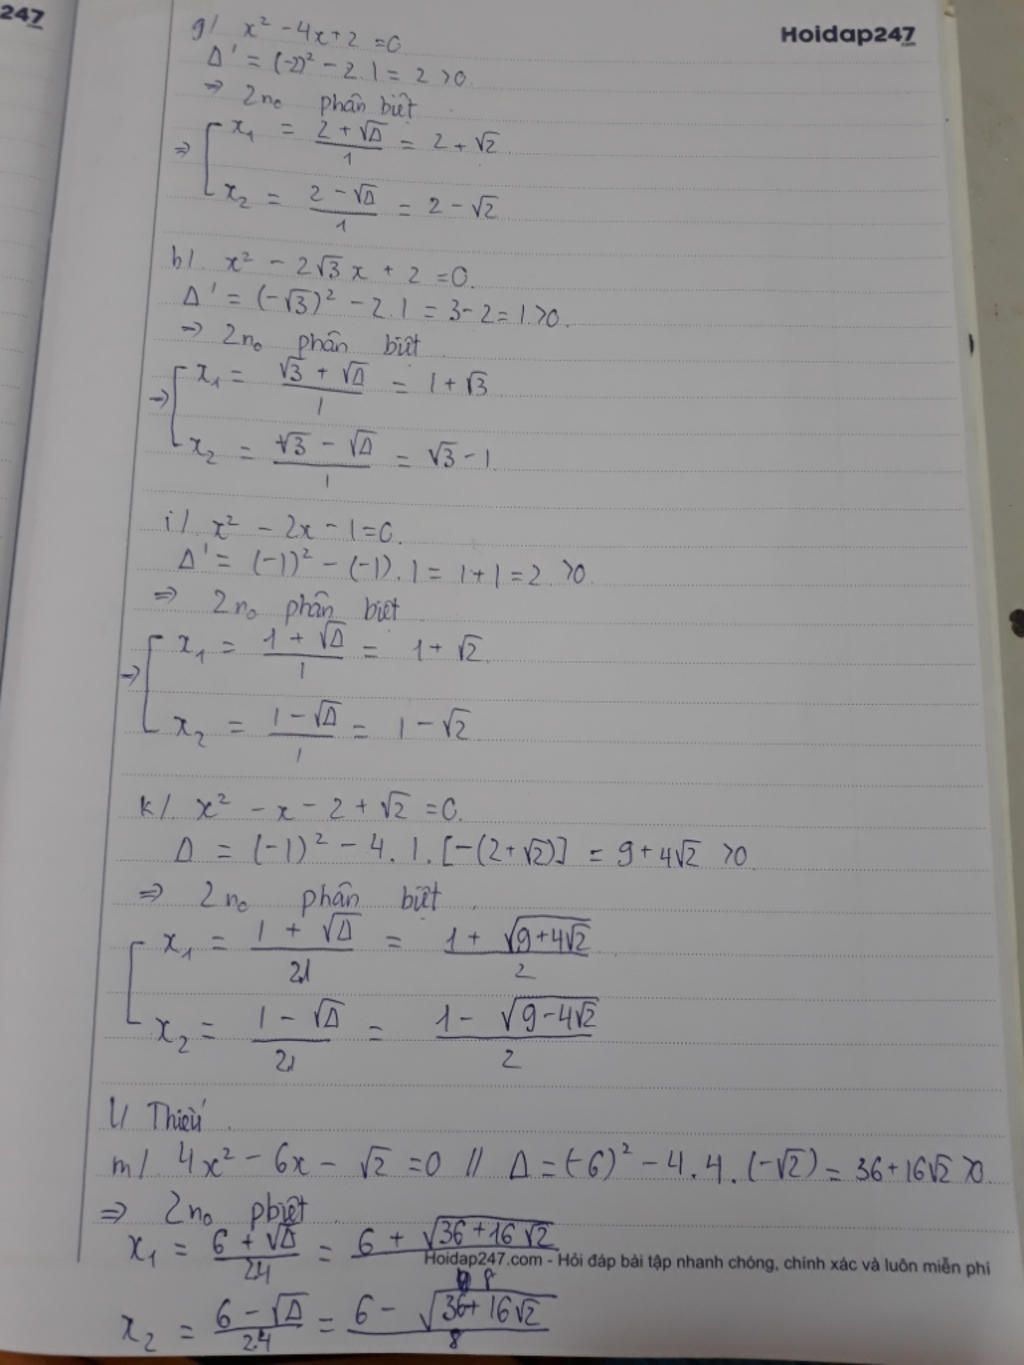 247
Hoidap247
g/ x² - 4x + 2 = 0
Δ' = (-2)² - 2.1 = 2 > 0.
⇒ 2 n₀ phân biệt
⇒ [ x₁ = (2 + √Δ)/1 = 2 + √2
x₂ = (2 - √Δ)/1 = 2 - √2
h/. x² - 2√3 x + 2 = 0.
Δ' = (-√3)² - 2.1 = 3 - 2 = 1 > 0.
⇒ 2 n₀ phân biệt
⇒ [ x₁ = (√3 + √Δ)/1 = 1 + √3
x₂ = (√3 - √Δ)/1 = √3 - 1
i/. x² - 2x - 1 = 0.
Δ' = (-1)² - (-1).1 = 1 + 1 = 2 > 0
⇒ 2 n₀ phân biệt
⇒ [ x₁ = (1 + √Δ)/1 = 1 + √2.
x₂ = (1 - √Δ)/1 = 1 - √2
k/. x² - x - 2 + √2 = 0.
Δ = (-1)² - 4.1.[-(2+√2)] = 9 + 4√2 > 0
⇒ 2 n₀ phân biệt.
[ x₁ = (1 + √Δ)/2.1 = (1 + √(9+4√2))/2
x₂ = (1 - √Δ)/2.1 = (1 - √(9-4√2))/2
l/ Thiếu.
m/. 4x² - 6x - √2 = 0 // Δ = (-6)² - 4.4.(-√2) = 36 + 16√2 > 0.
⇒ 2 n₀ pbiệt.
x₁ = (6 + √Δ)/2.4 = (6 + √(36+16√2))/8
Hoidap247.com - Hỏi đáp bài tập nhanh chóng, chính xác và luôn miễn phí
x₂ = (6 - √Δ)/2.4 = (6 - √(36+16√2))/8